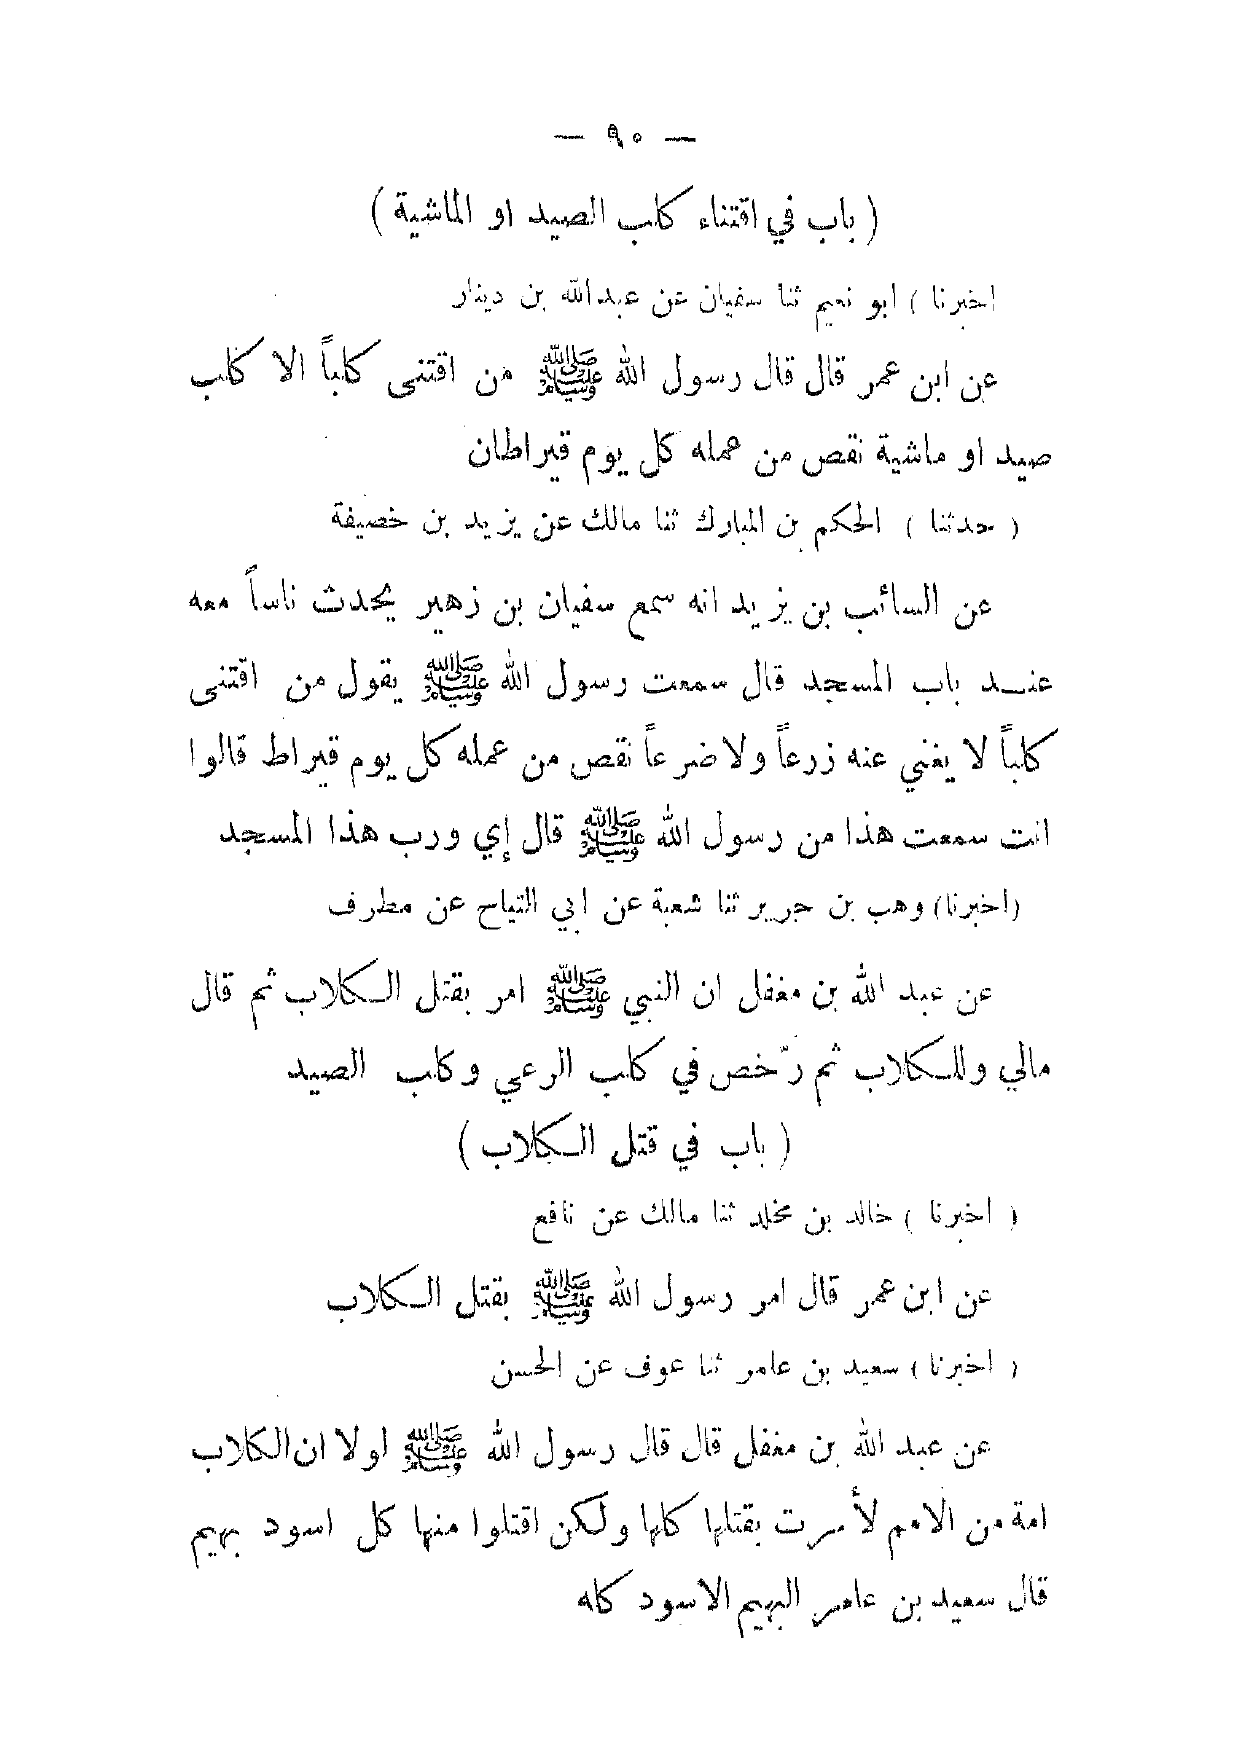 — ٩٠ —
( باب في اقتناء كلب الصيد او الماشية )
اخبرنا ) ابو نعيم ثنا سفيان عن عبدالله بن دينار
عن ابن عمر قال قال رسول الله ﷺ من اقتنى كلباً الا كلب
صيد او ماشية نقص من عمله كل يوم قيراطان
( حدثنا ) الحكم بن المبارك ثنا مالك عن يزيد بن خصيفة
عن السائب بن يزيد انه سمع سفيان بن زهير يحدث ناساً معه
عنـد باب المسجد قال سمعت رسول الله ﷺ يقول من اقتنى
كلباً لا يغني عنه زرعاً ولا ضرعاً نقص من عمله كل يوم قيراط قالوا
انت سمعت هذا من رسول الله ﷺ قال إي ورب هذا المسجد
(اخبرنا) وهب بن جرير ثنا شعبة عن ابي التياح عن مطرف
عن عبد الله بن مغفل ان النبي ﷺ امر بقتل الـكلاب ثم قال
مالي وللـكلاب ثم رّخص في كلب الرعي وكلب الصيد
( باب في قتل الـكلاب )
( اخبرنا ) خالد بن مخلد ثنا مالك عن نافع
عن ابن عمر قال امر رسول الله ﷺ بقتل الـكلاب
( اخبرنا ) سعيد بن عامر ثنا عوف عن الحسن
عن عبد الله بن مغفل قال قال رسول الله ﷺ اولا ان الكلاب
امة من الامم لأمرت بقتلها كلها ولكن اقتلوا منها كل اسود بهيم
قال سعيد بن عامر البهيم الاسود كله